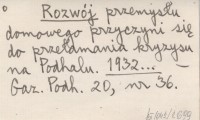 Rozwój przemysłu
domowego przyczyni się
do przełamania kryzysu
na Podhalu. 1932... —
Gaz. Podh. 20, nr 36.